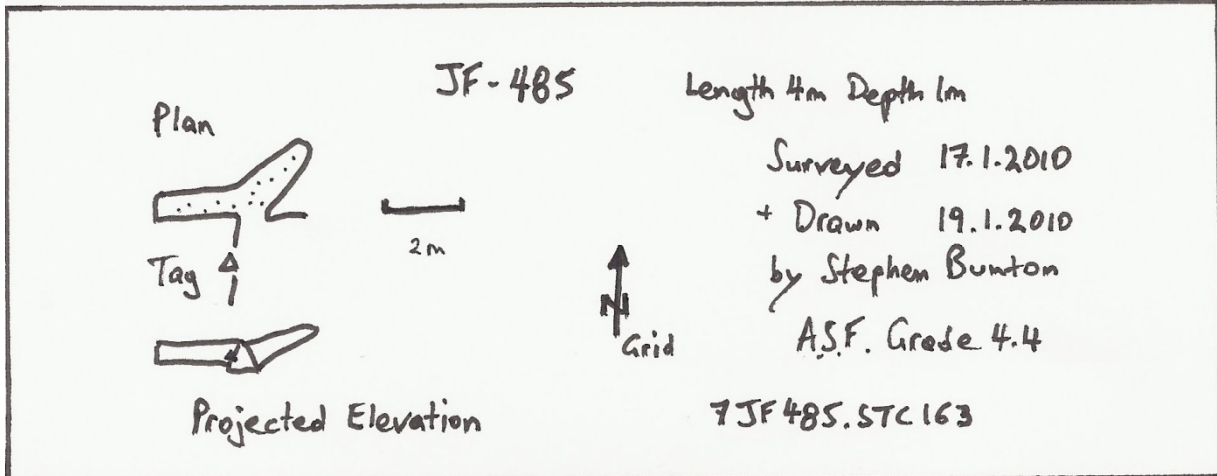 JF-485
Length 4m Depth 1m
Plan
Surveyed 17.1.2010
+ Drawn 19.1.2010
by Stephen Bunton
A.S.F. Grade 4.4
2m
Tag
N
Grid
Projected Elevation
7JF485.STC163